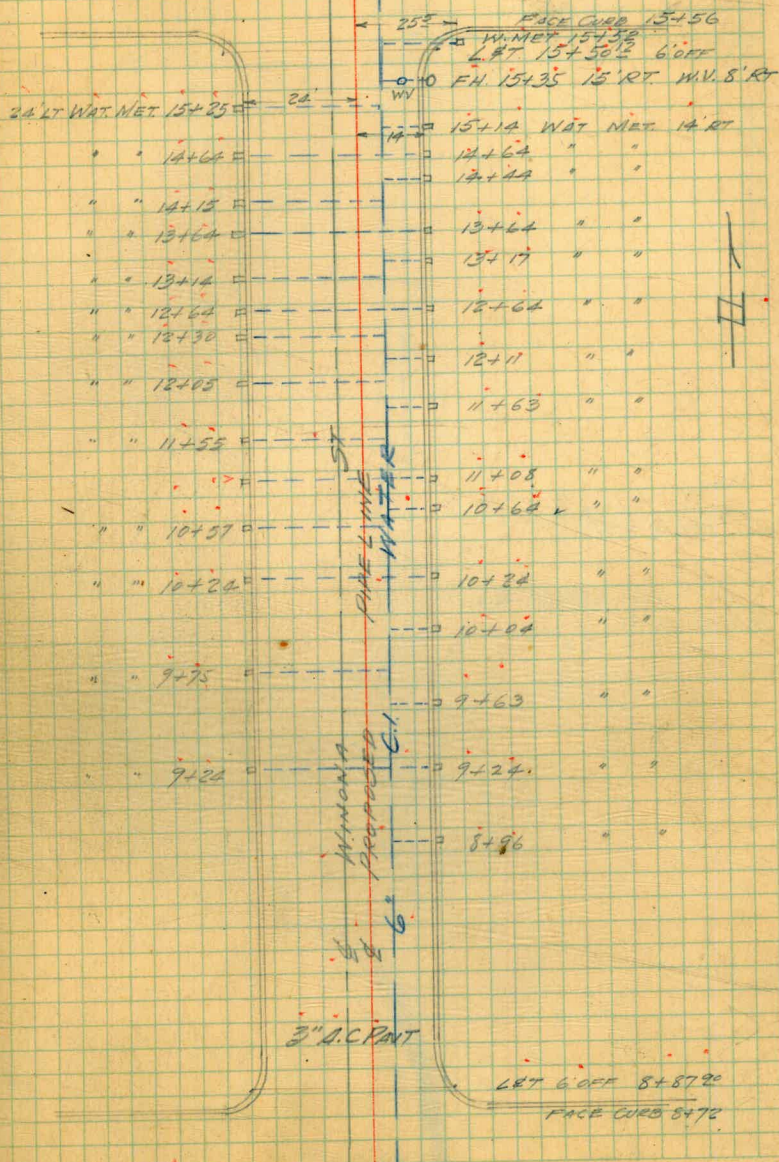 25⁵ FACE CURB 15+56
W. MET 15+52
L&T 15+50¹² 6' OFF
WV FH 15+35 15' RT. W.V. 8' RT
24' LT WAT. MET. 15+25 24'
14 15+14 WAT MET. 14' RT
" " 14+64 14+64 " "
14+44 " "
" " 14+15
" " 13+64 13+64 " "
13+17 " "
" " 13+14
" " 12+64 12+64 " "
" " 12+30
12+11 " "
" " 12+05
11+63 " "
" " 11+55
11+08 " "
10+64 " "
" " 10+57
" " 10+24 10+24 " "
10+04 " "
" " 9+75
9+63 " "
" " 9+24 9+24 " "
8+96 " "
℄ WINONA ST
℄ PROPOSED PIPE LINE
6" C.I. WATER
3" A.C PAVT
L&T 6' OFF 8+87⁹⁰
FACE CURB 8+72